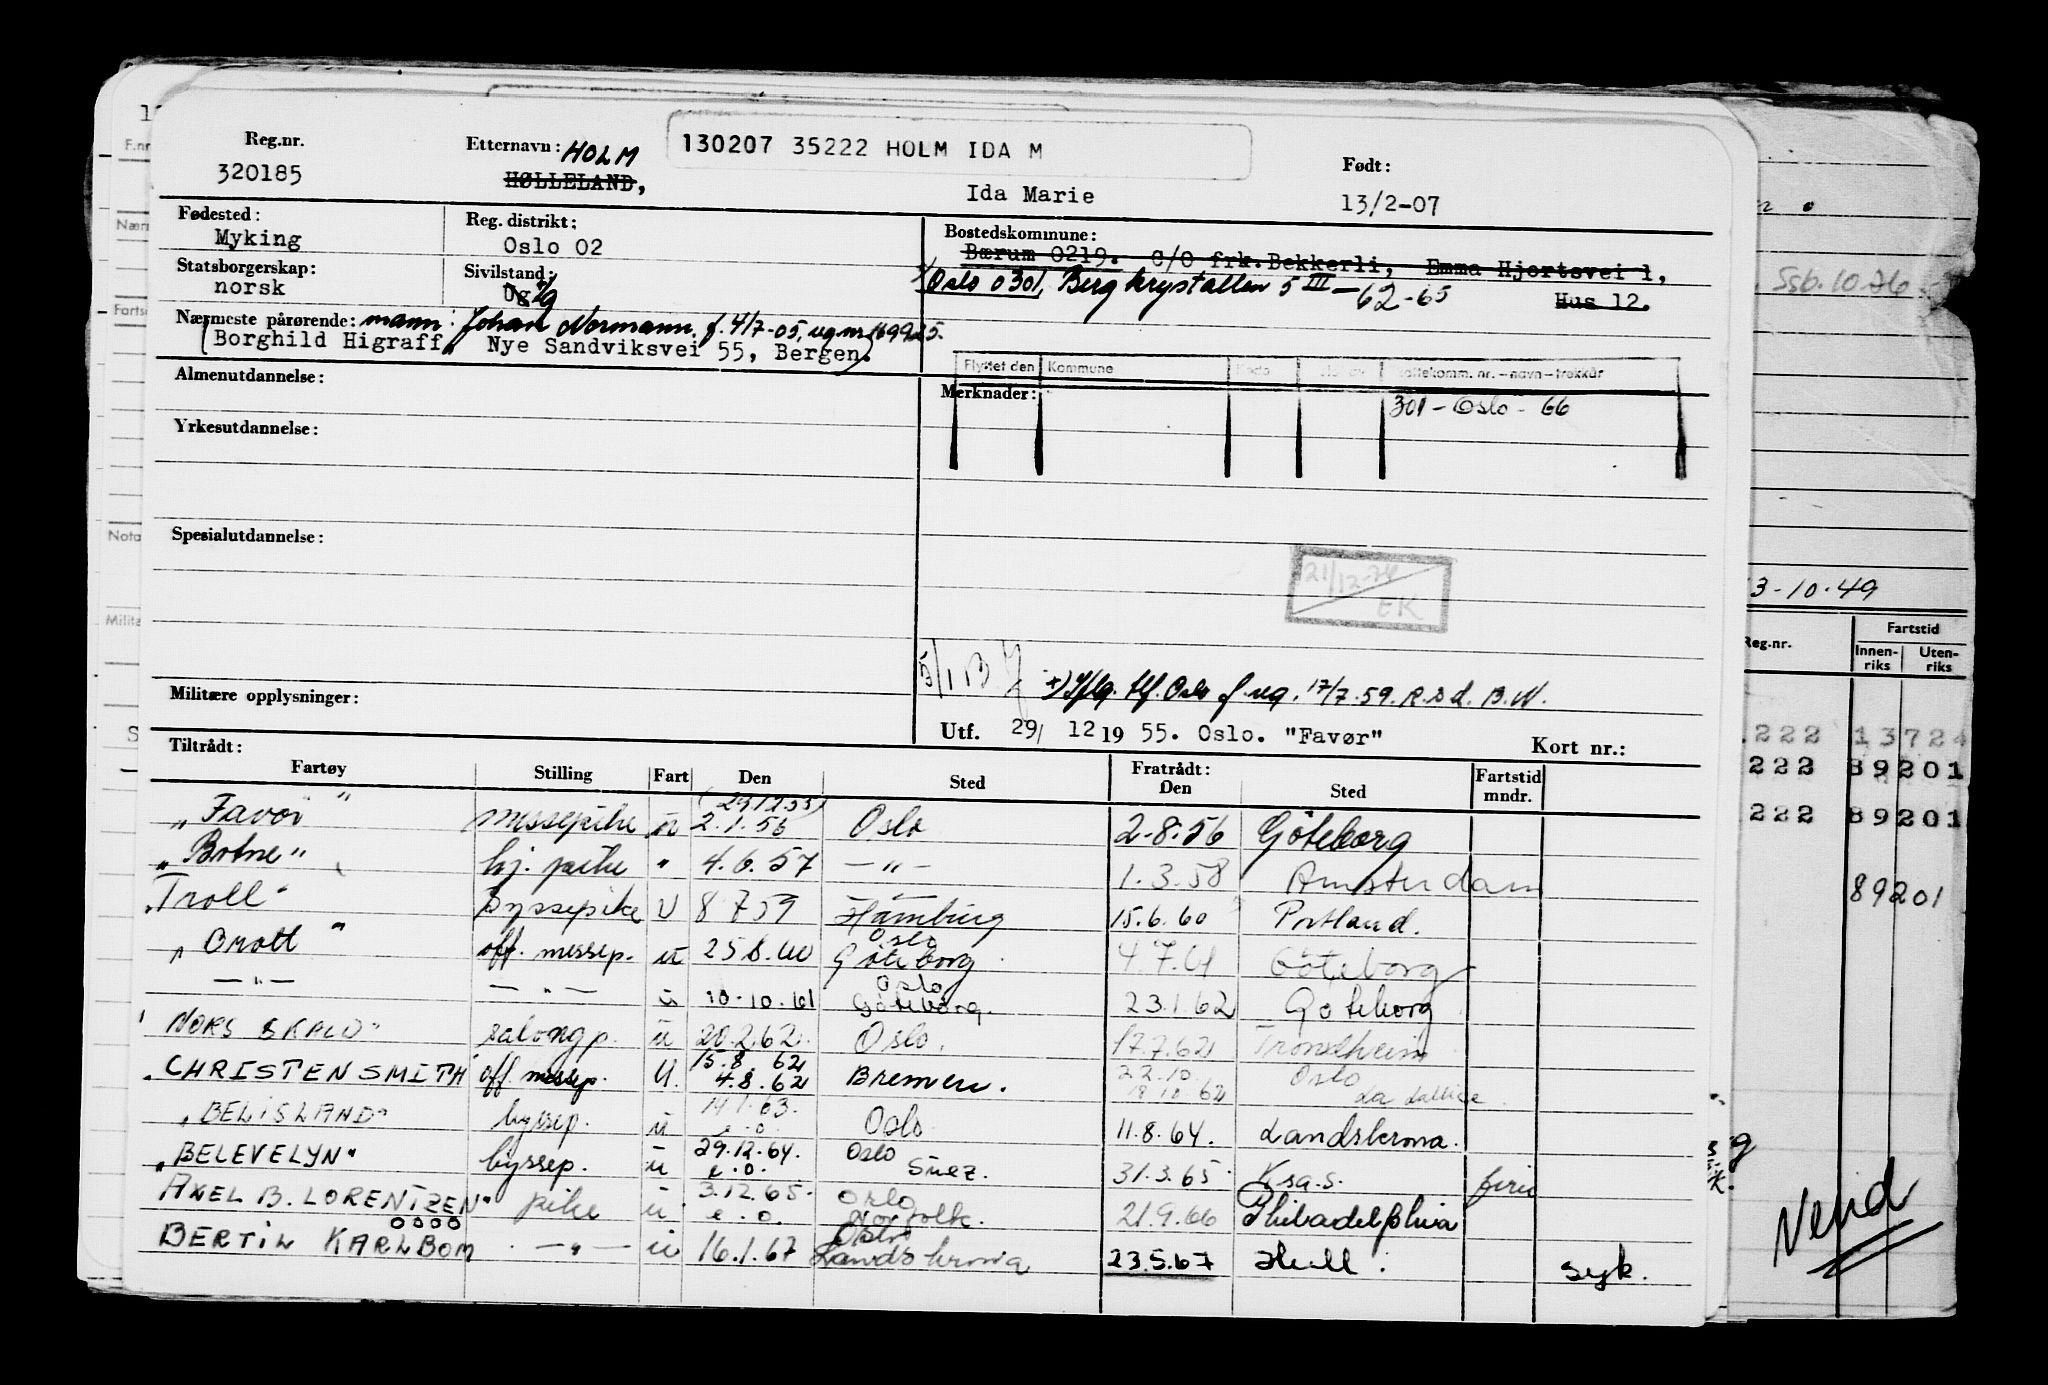 Reg.nr. Etternavn: HOLM 130207 35222 HOLM IDA M Født:
320185 HØLLELAND, Ida Marie 13/2-07
Fødested: Reg. distrikt: Bostedskommune:
Myking Oslo 02 Bærum 0219. C/O frk. Bekkerli, Emma Hjortsvei 1,
Hus 12.
Statsborgerskap: Sivilstand: Oslo 0301, Bergkrystallen 5 III - 62-65
norsk Ug g
Nærmeste pårørende: mann: Johan Normann f. 4/7-05, reg nr 169925.
(Borghild Higraff, Nye Sandviksvei 55, Bergen.)
Almenutdannelse: Flyttet den Kommune
Merknader: 301 - Oslo - 66
Yrkesutdannelse:
Spesialutdannelse:
21/12-74
EK
Militære opplysninger: 17/7.59. B.N.
Utf. 29/ 12 19 55. Oslo. "Favør" Kort nr.:
Tiltrådt: Fratrådt: Fartstid
Fartøy Stilling Fart Den Sted Den Sted mndr.
(29.12.55)
"Favør" messepike u 2.1.56 Oslo 2-8.56 Göteborg
"Botne" hj. pike " 4.6.57 —"— 1.3.58 Amsterdam
"Troll" Byssepike U 8 7 59 Hamburg 15.6.60 Portland.
Oslo
"Brott" off. messep. u 25 8.60 Göteborg 4.7.61 Göteborg
Oslo
—"— —"— u 10-10.61 Göteborg. 23.1.62 Göteborg
"NORS SKALD" salongp. u 20.2.62. Oslo. 17.7.62 Trondheim
15.8.62 22.10. Oslo
"CHRISTEN SMITH" off messep. U. 4.8.62 Bremen. 18.10.62
14.1.63.
"BELISLAND" byssep. u e.o. Oslo 11.8.64. Landskrona.
29.12.64. Oslo
"BELEVELYN" byssep. u e.o. Suez. 31.3.65 K.sa.s. ferie
3.12.65. Oslo
"AXEL B. LORENTZEN" pike u e.o. Norfolk. 21.9.66 Philadelphia
Oslo
BERTIL KARLBOM —"— u 16.1.67 Landskrona 23.5.67 Hull. syk.
F.nr
Fartsi
Nota
Milita
Ssb. 10
3-10-49
Reg.nr. Fartstid
Innen-riks Uten-riks
222 13724
222 89201
222 89201
89201
Vend